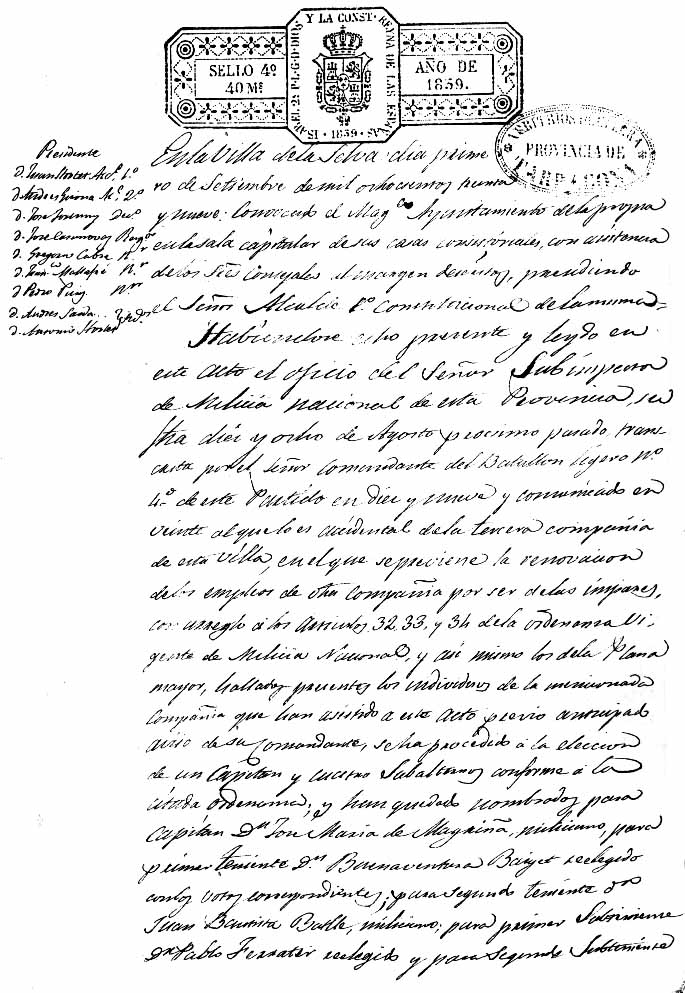 SELLO 4º
40 Ms
ISABEL 2ª P.L.G.D. DIOS Y LA CONST. REYNA DE LAS ESPAÑAS
1839
AÑO DE
1839.
ARBITRIOS DE
PROVINCIA DE
TARRAGONA
Presidente
D. Juan Alc. 1.º
D. Al. 2.º
D. Jose
D. Jose Casanovas Reg.or
D. Gregorio Cabre
D. Mallafré
D. Pedro Puig
D. Andres
D. Antonio
En la Villa de la Selva dia prime
ro de Setiembre de mil ochocientos treinta
y nueve: Convocado el Mag.co Ayuntamiento de la propia
en la sala capitular de sus casas consistoriales, con asistencia
de los Sres Concejales al margen descritos, presidiendo
el Señor Alcalde 1.º Constitucional de la misma =
Habiendose echo presente y leydo en
este acto el oficio del Señor Subinspector
de Milicia nacional de esta Provincia, su
fha diez y ocho de Agosto procsimo pasado, trans
crito por el Señor Comandante del Batallon ligero nº
4.º de este Partido en diez y nueve y comunicado en
veinte al que lo es accidental de la tercera compañia
de esta villa, en el que se previene la renovacion
de los empleos de dha compañia por ser de las impares,
con arreglo à los articulos 32, 33, y 34 de la ordenanza vi,
gente de Milicia Nacional, y asi mismo los de la Plana
mayor, hallados presentes los individuos de la mencionada
Compañia que han asistido a este acto previo anticipado
aviso de su comandante, se ha procedido à la eleccion
de un Capitan y cuatro Subalternos conforme à la
citada ordenanza, y han quedado nombrados para
Capitan Dn José Maria de Magriñá, miliciano, para
primer teniente Dn Buenaventura Baiget reelegido
con los votos correspondientes; para segundo teniente Dn
Juan Bautista Batlle, miliciano; para primer Subteniente
Dn Pablo Ferrater reelegido y para segundo Subteniente